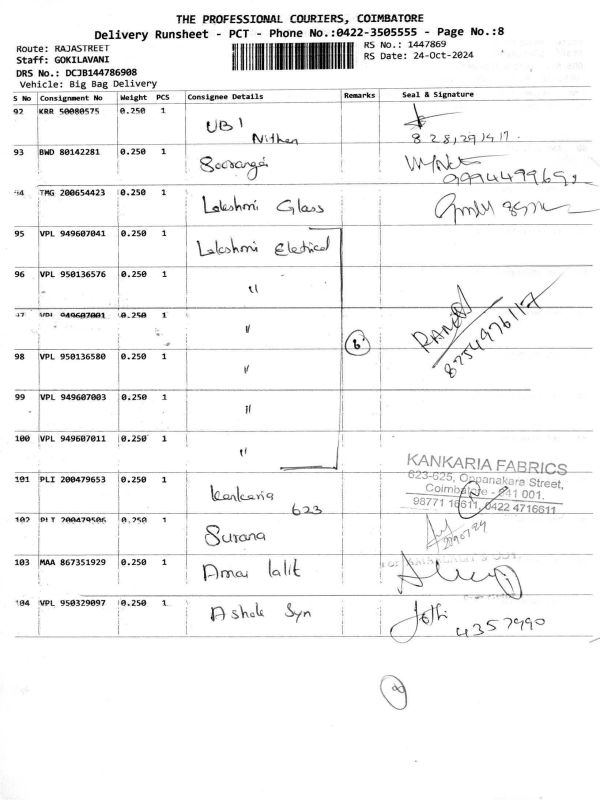 THE PROFESSIONAL COURIERS, COIMBATORE
Delivery Runsheet - PCT - Phone No.:0422-3505555 - Page No.:8
Route: RAJASTREET
RS No.: 1447869
Staff: GOKILAVANI
RS Date: 24-Oct-2024
DRS No.: DCJB144786908
Vehicle: Big Bag Delivery
S No Consignment No Weight PCS Consignee Details Remarks Seal & Signature
92 KRR 50080575 0.250 1 UBI
Nithen
93 BWD 80142281 0.250 1
9994499692
94 TMG 200654423 0.250 1 Lakshmi Glass
95 VPL 949607041 0.250 1 Lakshmi Eletrical
96 VPL 950136576 0.250 1 "
97 VPL 949607001 0.250 1 "
6
8754976117
98 VPL 950136580 0.250 1 "
99 VPL 949607003 0.250 1 "
100 VPL 949607011 0.250 1 "
101 PLI 200479653 0.250 1 Kankaria
623
KANKARIA FABRICS
623-625, Oppanakara Street,
Coimbatore - 641 001.
98771 16611, 0422 4716611
102 PLI 200479506 0.250 1 Surana
103 MAA 867351929 0.250 1 Amar lalit
104 VPL 950329097 0.250 1 Ashok Syn
Jothi
4357990